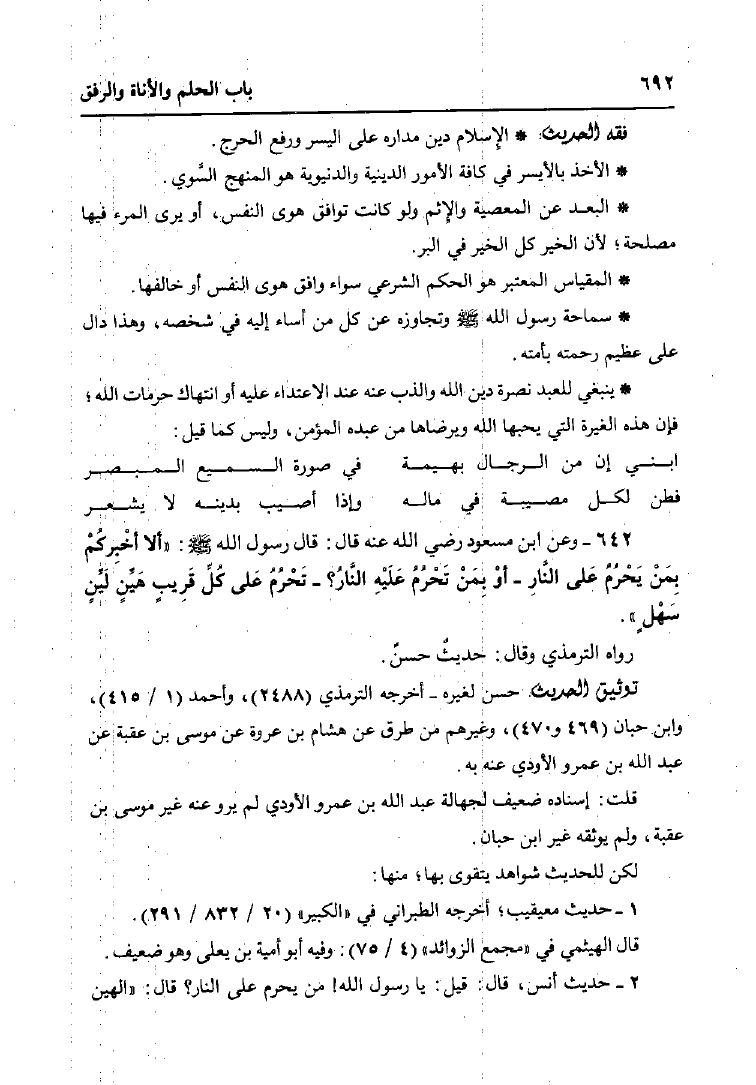 ٦٩٢ باب الحلم والأناة والرفق
فقه الحديث: * الإسلام دين مداره على اليسر ورفع الحرج.
* الأخذ بالأيسر في كافة الأمور الدينية والدنيوية هو المنهج السَّوي.
* البعد عن المعصية والإثم ولو كانت توافق هوى النفس، أو يرى المرء فيها
مصلحة؛ لأن الخير كل الخير في البر.
* المقياس المعتبر هو الحكم الشرعي سواء وافق هوى النفس أو خالفها.
* سماحة رسول الله ﷺ وتجاوزه عن كل من أساء إليه في شخصه، وهذا دال
على عظيم رحمته بأمته.
* ينبغي للعبد نصرة دين الله والذب عنه عند الاعتداء عليه أو انتهاك حرمات الله؛
فإن هذه الغيرة التي يحبها الله ويرضاها من عبده المؤمن، وليس كما قيل:
ابـنـي إن مـن الـرجـال بـهـيـمـة في صورة الـسـمـيـع الـمـبـصـر
فطن لـكـل مـصـيـبـة في مـالـه وإذا أصـيـب بـديـنـه لا يـشـعـر
٦٤٢ ـ وعن ابن مسعود رضي الله عنه قال: قال رسول الله ﷺ: «ألا أخْبِركُمْ
بِمَنْ يَحْرُمُ عَلى النَّارِ ـ أوْ بِمَنْ تَحْرُمُ عَلَيْهِ النَّارُ؟ ـ تَحْرُمُ عَلى كُلِّ قَرِيبٍ هَيِّنٍ لَيِّنٍ
سَهْلٍ».
رواه الترمذي وقال: حديثٌ حسنٌ.
توثيق الحديث: حسن لغيره ـ أخرجه الترمذي (٢٤٨٨)، وأحمد (١ / ٤١٥)،
وابن حبان (٤٦٩ و٤٧٠)، وغيرهم من طرق عن هشام بن عروة عن موسى بن عقبة عن
عبد الله بن عمرو الأودي عنه به.
قلت: إسناده ضعيف لجهالة عبد الله بن عمرو الأودي لم يرو عنه غير موسى بن
عقبة، ولم يوثقه غير ابن حبان.
لكن للحديث شواهد يتقوى بها؛ منها:
١ ـ حديث معيقيب؛ أخرجه الطبراني في «الكبير» (٢٠ / ٨٣٢ / ٢٩١).
قال الهيثمي في «مجمع الزوائد» (٤ / ٧٥): وفيه أبو أمية بن يعلى وهو ضعيف.
٢ ـ حديث أنس، قال: قيل: يا رسول الله! من يحرم على النار؟ قال: «الهين